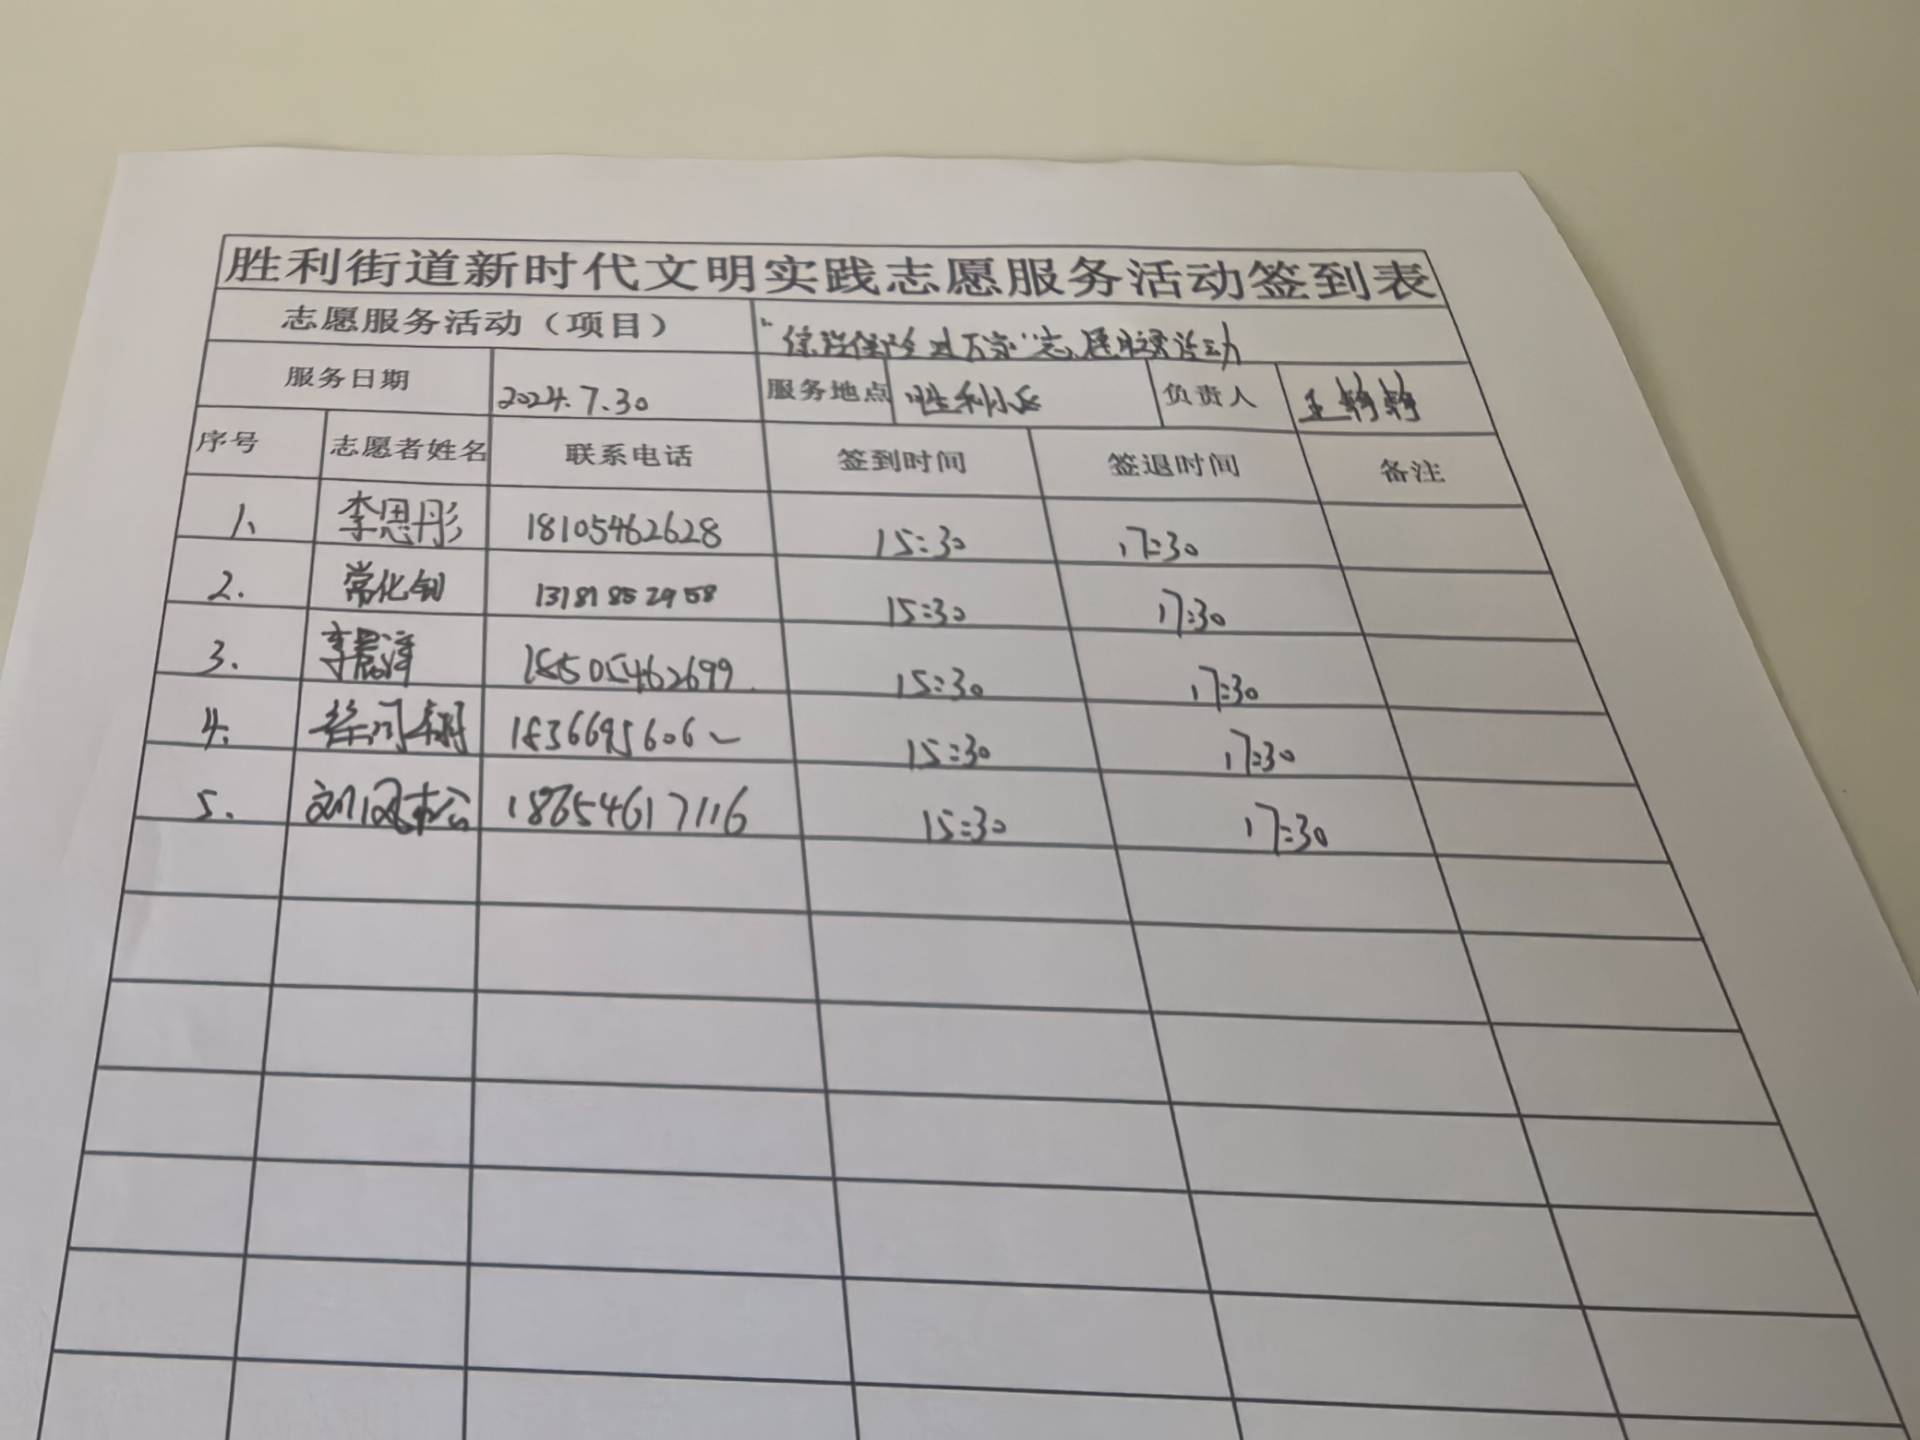 胜利街道新时代文明实践志愿服务活动签到表
志愿服务活动（项目） 志愿服务活动
服务日期 2024.7.30 服务地点 胜利小区 负责人 王静静
序号 志愿者姓名 联系电话 签到时间 签退时间 备注
1、 李思彤 18105462628 15:30 17:30
2. 常化 15:30 17:30
3. 李 15:30 17:30
4. 徐 15:30 17:30
5. 刘 18654617116 15:30 17:30